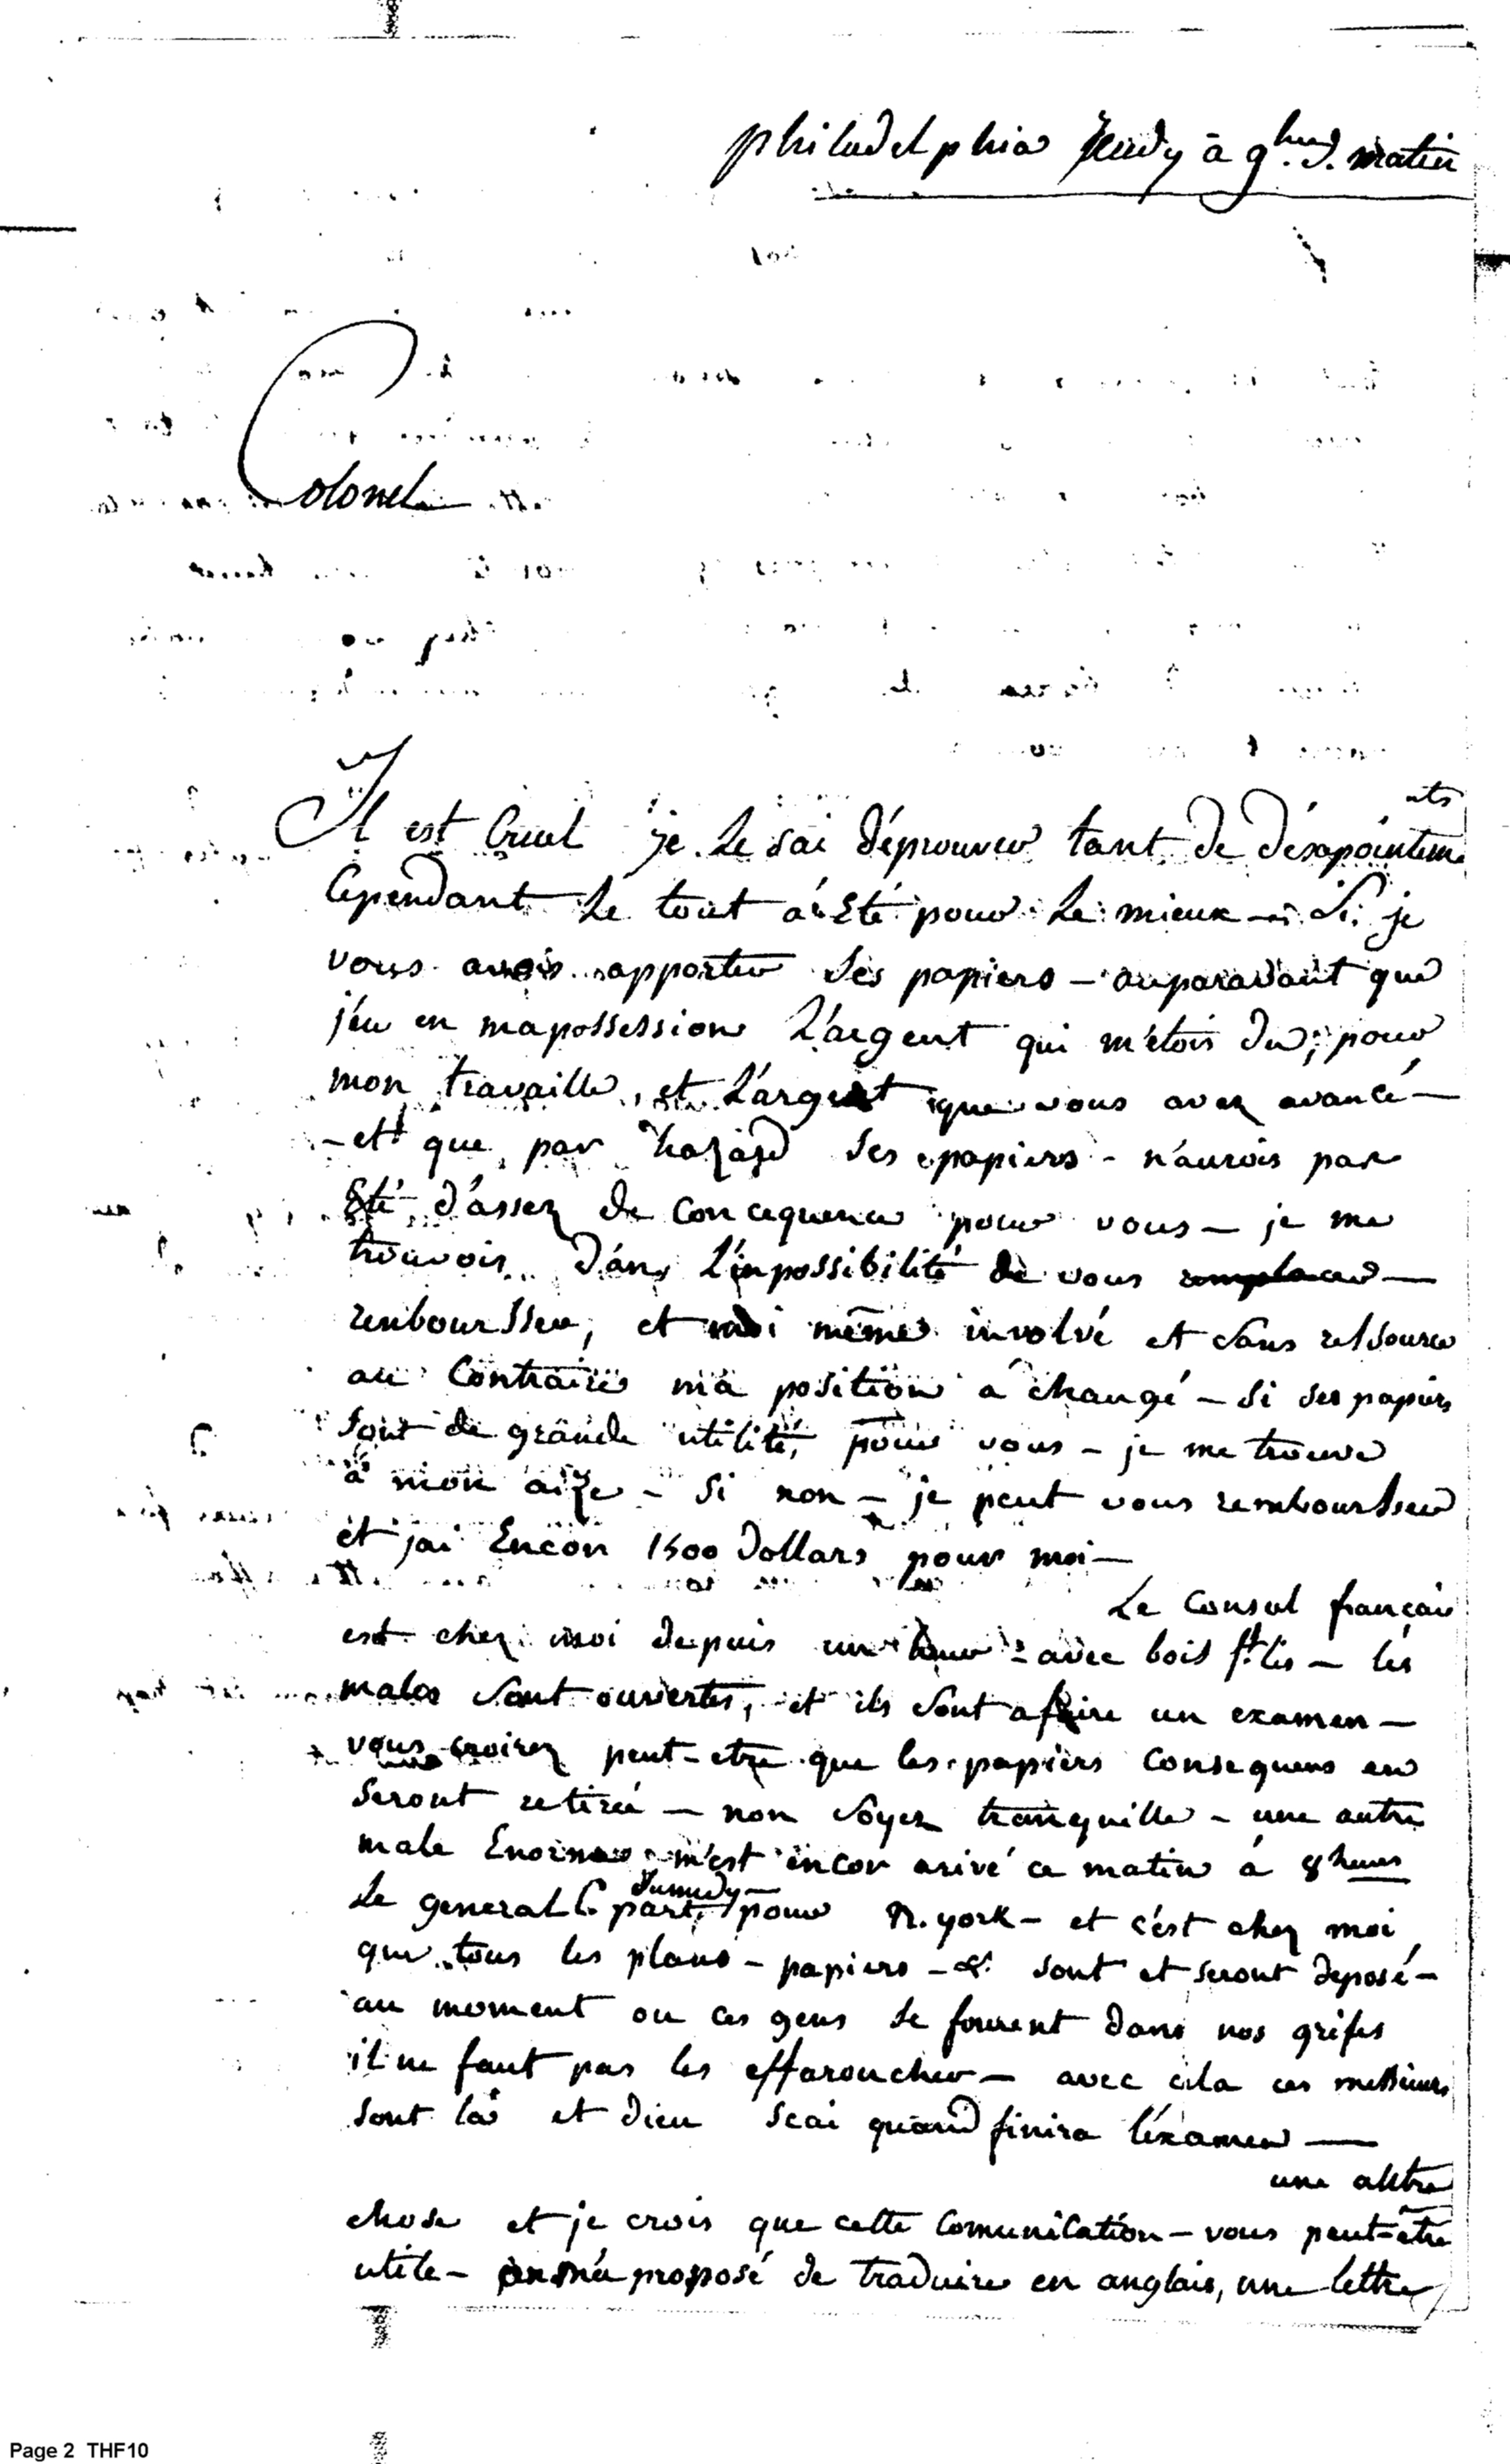 philadelphia Jeudy à 9.heu d. matin
Colonel
Il est Cruel je le sai d'éprouver tant de désapointements
Cependant le tout a Eté pour le mieux — Si je
vous avois apporter ses papiers — auparavant que
j'eu en ma possession l'argent qui m'etois du, pour
mon travaille, et l'argent que vous avez avancé —
— et que par hazard ses papiers — n'aurois pas
Eté d'assez de Concequence pour vous — je me
trouvois dans l'inpossibilité de vous
remboursser, et moi même involvé et sans ressource
au Contraire ma position a changé — Si ses papiers
sont de grande utilité, pour vous — je me trouve
a mon aize — Si non — je peut vous rembourser
et jai Encor 1500 Dollars pour moi —
Le Consul français
est chez moi depuis un heur — avec bois — les
males sont ouvertes, et ils sont a faire un examen —
vous croirez peut-etre que les papiers consequens en
seront retiré — non soyez tranquille — une autre
male Enorme m'est encor arivé ce matin a 8 heures
Le general C. part, Samedy pour N. york — et c'est chez moi
que tous les plans — papiers — &. sont et seront deposé —
au moment ou ces gens se fourent dans nos grifes
il ne faut pas les effaroucher — avec cela ces messieurs
sont là et dieu scai quand finira l'examen —
une autre
chose et je crois que cette Comunication — vous peut-être
utile — on m'a proposé de traduire en anglais, une lettre
Page 2 THF10